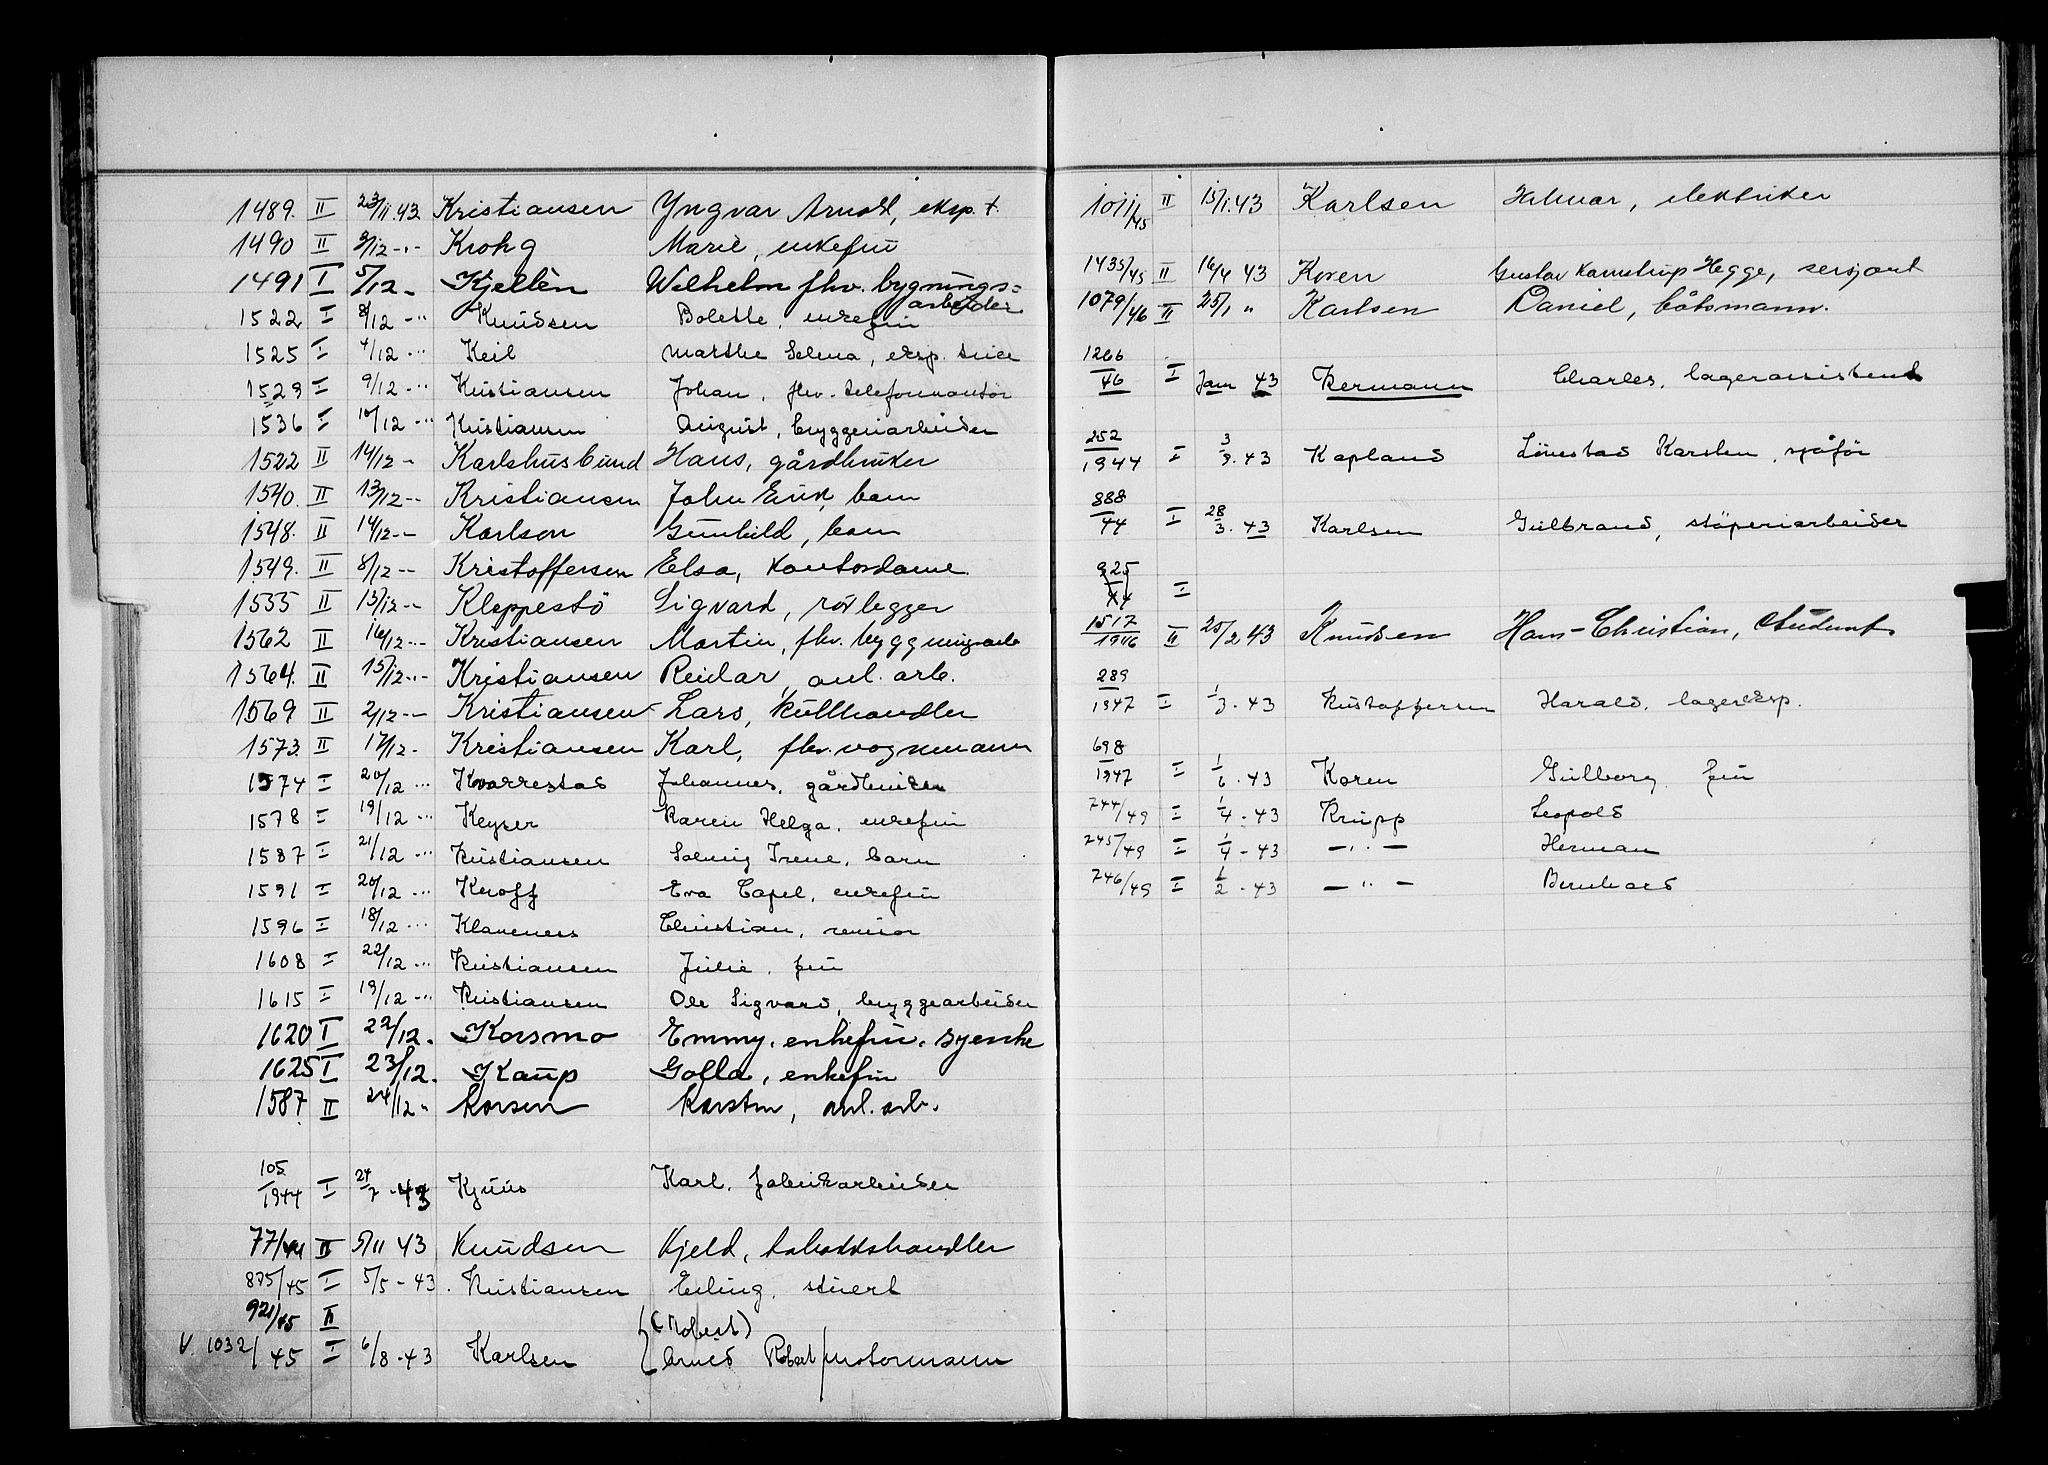 1489. II 23/11.43 Kristiansen Yngvar Arnold, eksp. t.
1490 II 3/12 -"- Krohg Marie, enkefru
1491 I 5/12 - Kjellèn Wilhelm fhv. bygnings=
arbeider
1522 I 8/12 -"- Knudsen Bolette, enkefru
1525 I 4/12 -"- Keil Marthe Selma, eksp.
1529 I 9/12 -"- Kristiansen Johan, fhv. telefonmontör
1536 I 10/12 -"- Kristiansen August, bryggeriarbeider
1522 II 14/12 -"- Karlshuslund Hans, gårdbruker
1540. II 13/12 -"- Kristiansen John Erik, barn
1548. II 14/12 -"- Karlson Gunhild, barn
1549. II 8/12 -"- Kristoffersen Elsa, kontordame
1555 II 13/12 -"- Kleppestö Sigvard, rörlegger
1562 II 16/12 -"- Kristiansen Martin, fhv. bygningsarb
1564. II 15/12 -"- Kristiansen Reidar, anl. arb.
1569 II 2/12 -"- Kristiansen Lars, kullhandler
1573. II 17/12 - Kristiansen Karl, fhv. vognmann
1574 I 20/12 -"- Kvarrestad Johannes, gårdbruker
1578 I 19/12 -"- Keyser Karen Helga, enkefru
1587 I 21/12 -"- Kristiansen Solveig Irene, barn
1591 I 20/12 -"- Knoff Eva Capel, enkefru
1596 I 18/12 -"- Klaveness Christian, revisor
1608 I 22/12 -"- Kristiansen Julie, fru
1615 I 19/12 -"- Kristiansen Ole Sigvard, bryggearbeider
1620 I 22/12. Korsmo Emmy, enkefru, syerske
1625 I 23/12. Kaup Golla, enkefru
1587 II 24/12 -" Korsen Karsten, anl. arb.
105/1944 I 24/7 -43 Kjuus Karl, fabrikarbeider
77/44 II 5/11 43 Knudsen Kjeld, tobakkshandler
875/45 I 5/5 - 43. Kristiansen Erling, stuert
921/45 II (Robert)
V. 1032/45 I 6/8 -43 Karlsen Arvid Robert, motormann
1011/45 II 15/1.43 Karlsen Hilmar, elektriker
1435/45 II 16/4 43 Koren Gustav Kamstrup Hegge, sersjant
1079/46 II 25/1 " Karlsen Daniel, båtsmann.
1266/46 I Jan 43 Kermann Charles, lagerassistent
252/1944 I 3/9. 43 Kapland Lönestad Karsten, sjåför
888/44 I 28/3. 43 Karlsen Gulbrand, stöperiarbeider
925/44 I
1517/1946 II 25/2 43 Knudsen Hans-Christian, student
289/1947 I 1/3. 43 Kristoffersen Harald, lagereksp.
698/1947 I 1/6. 43 Karen Gulborg, fru
744/49 I 1/4 - 43 Krupp Leopold
745/49 I 1/4 - 43 — " — Herman
746/49 I 1/2 - 43 — " — Bernhard